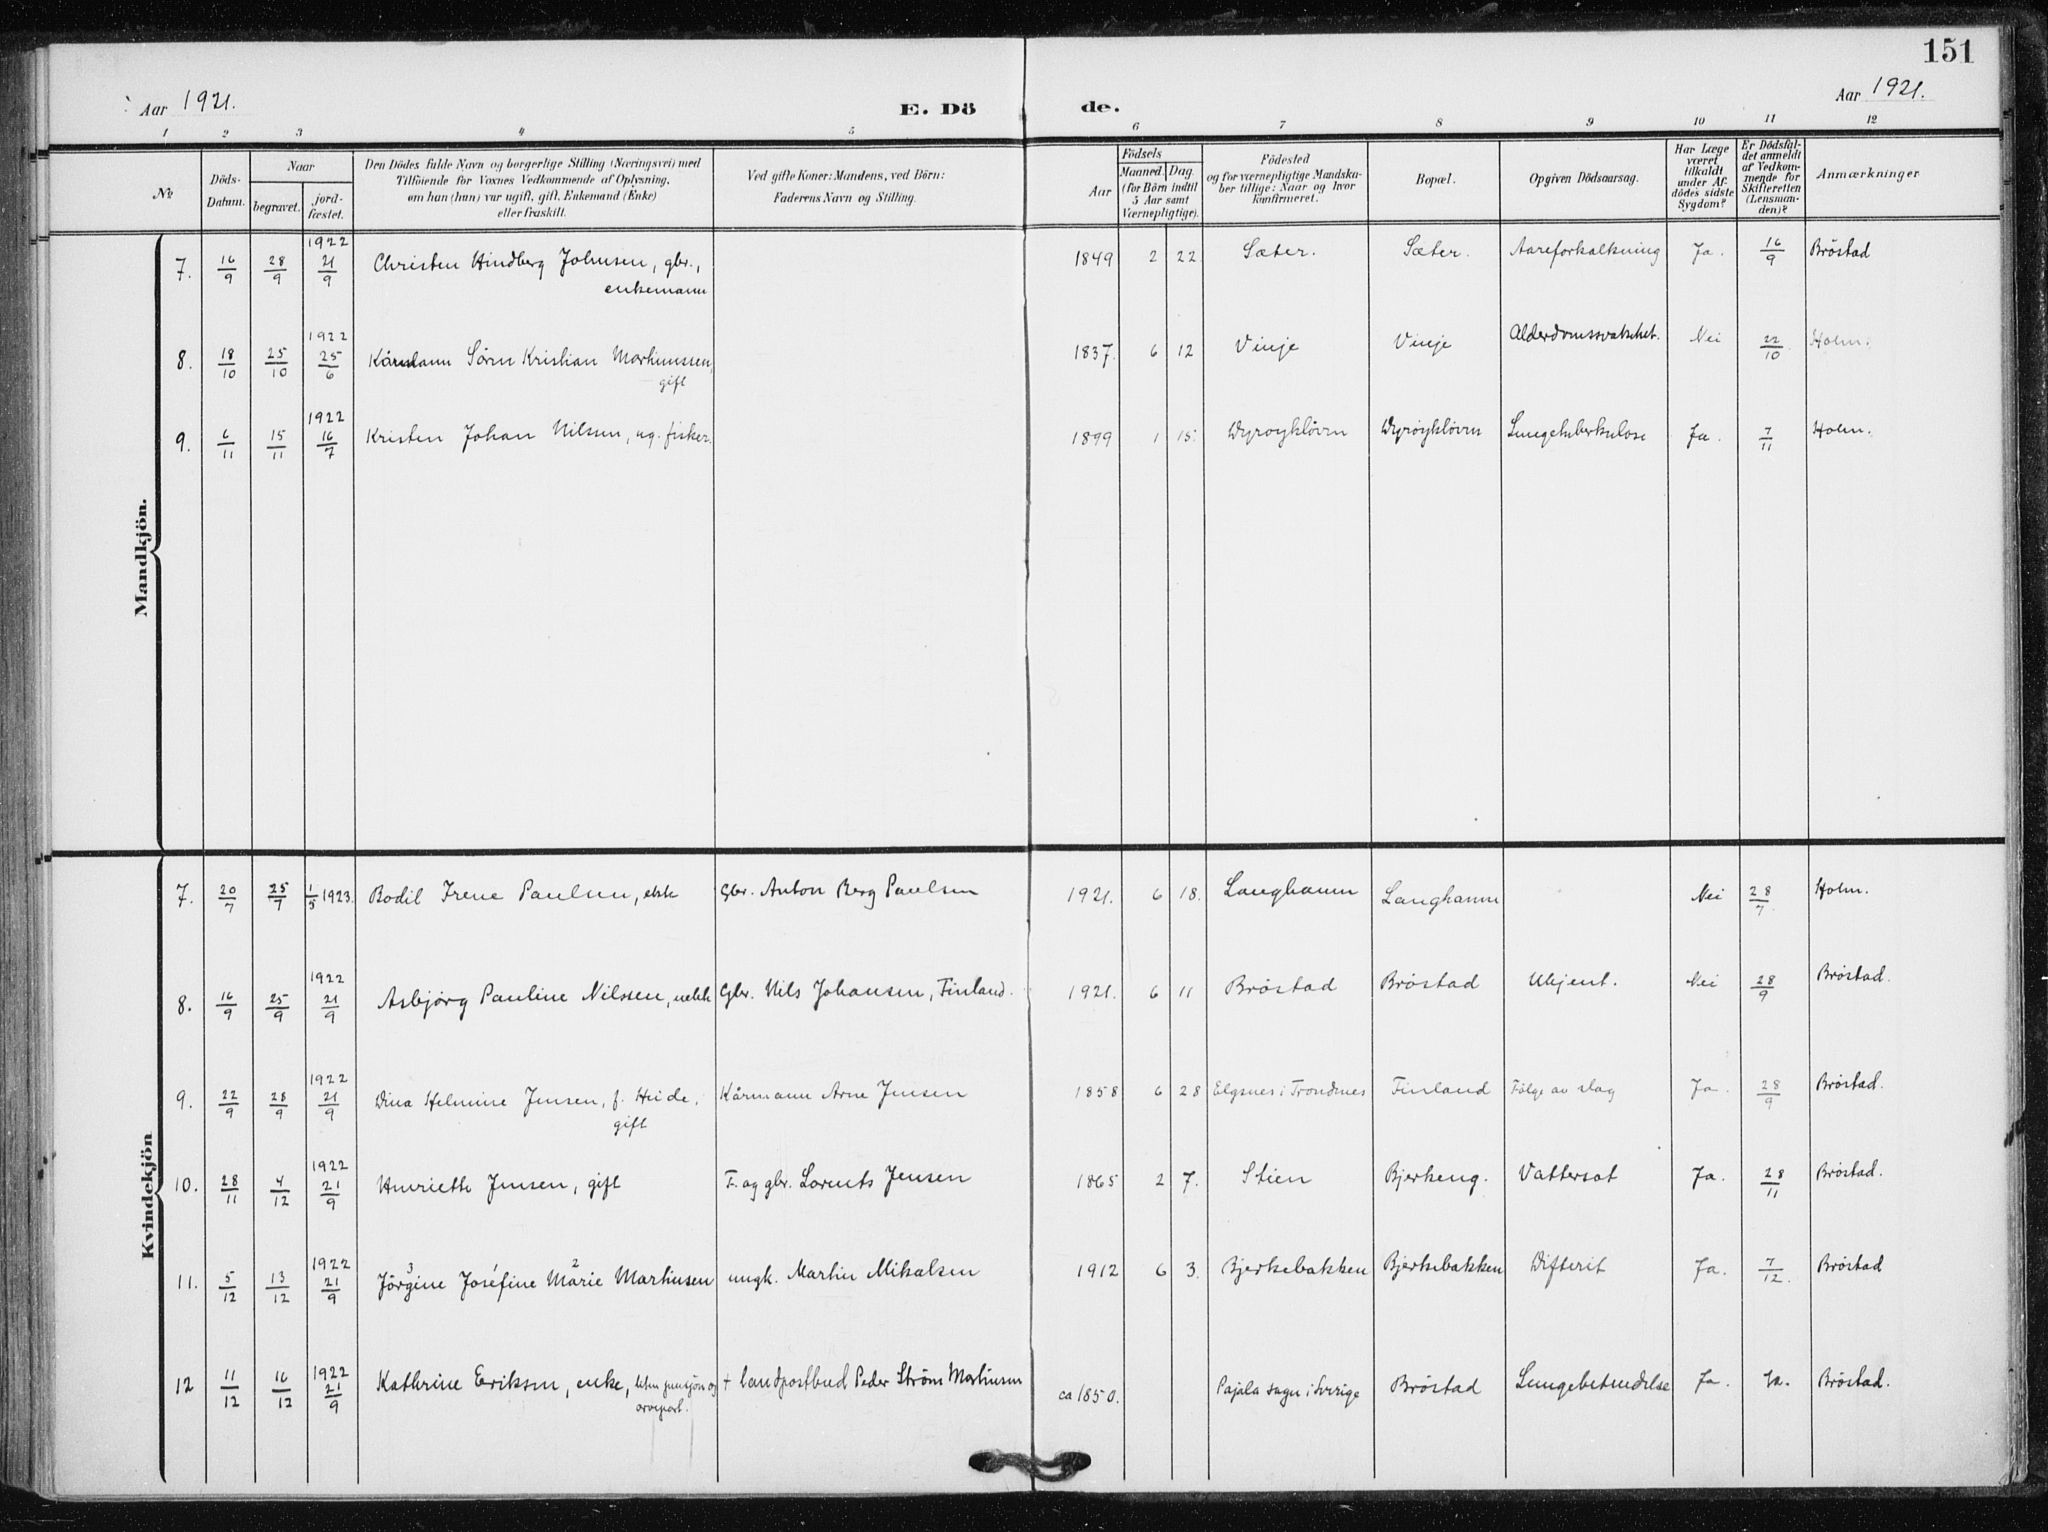 151
Aar 1921. E. Dö de. Aar 1921.
1 2 3 4 5 6 7 8 9 10 11 12
№
Döds-Datum.
Naar
begravet.
jord-fæstet.
Den Dödes fulde Navn og borgerlige Stilling (Næringsvei) med
Tilföiende for Voxnes Vedkommende af Oplysning,
om han (hun) var ugift, gift, Enkemand (Enke)
eller fraskilt.
Ved gifte Koner: Mandens, ved Börn:
Faderens Navn og Stilling.
Födsels
Aar
Maaned.
Dag.
(for Börn indtil
5 Aar samt
Værnepligtige).
Födested
og for værnepligtige Mandska-
ber tillige: Naar og hvor
konfirmeret.
Bopæl.
Opgiven Dödsaarsag.
Har Læge
været
tilkaldt
under Af-
dödes sidste
Sygdom?
Er Dödsfal-
det anmeldt
af Vedkom-
mende for
Skifteretten
(Lensman-
den)?
Anmærkninger
Mandkjön.
7. 16/9 28/9 1922 21/9 Christen Hindberg Johnsen, gbr., enkemann 1849 2 22 Sæter. Sæter. Aareforkalkning Ja. 16/9 Bröstad
8. 18/10 25/10 1922 25/6 Kårmann Sörn Kristian Martinussen, gift 1837. 6 12 Vinje Vinje Alderdomssvakhet. Nei 22/10. Holm.
9. 6/11 15/11 1922 16/7 Kristen Johan Nilsen, ug. fisker. 1899 1 15. Dyröyklövn Dyröyklövn Lungetuberkulose Ja. 7/11 Holm.
Kvindekjön
7. 20/7 25/7 1/5 1923. Bodil Irene Paulsen, ekte Gbr. Anton Berg Paulsen 1921. 6 18. Langhamn Langhamn Nei 28/7. Holm.
8. 16/9 25/9 1922 21/9 Asbjörg Pauline Nilssen, uekte Gbr. Nils Johansen, Finland. 1921. 6 11 Bröstad Bröstad Ukjent. Nei 28/9 Bröstad.
9. 22/9 28/9 1922 21/9 Dina Helmine Jensen, f. Heide, gift Kårmann Arne Jensen 1858 6 28 Elgsnes i Trondnes Finland Fölge av slag Ja. 28/9 Bröstad.
10. 28/11 4/12 1922 21/9 Henriette Jensen, gift F. og gbr. Lorents Jensen 1865 2 7. Stien Bjerkeng. Vattersot Ja. 28/11 Bröstad.
11. 5/12 13/12 1922 21/9 Jörgine 3 Joséfine 2 Marie Martinsen ungk. Martin Mikalsen 1912 6 3. Bjerkebakken Bjerkebakken Difterit Ja. 7/12. Bröstad
12 11/12 16/12 1922 21/9 Kathrine Eriksen, enke, liten pensjon og † landpostbud Peder Ström Martinsen ca 1850. Pajala sogn i Sverige Bröstad Lungebetendelse Ja. Ja. Bröstad.